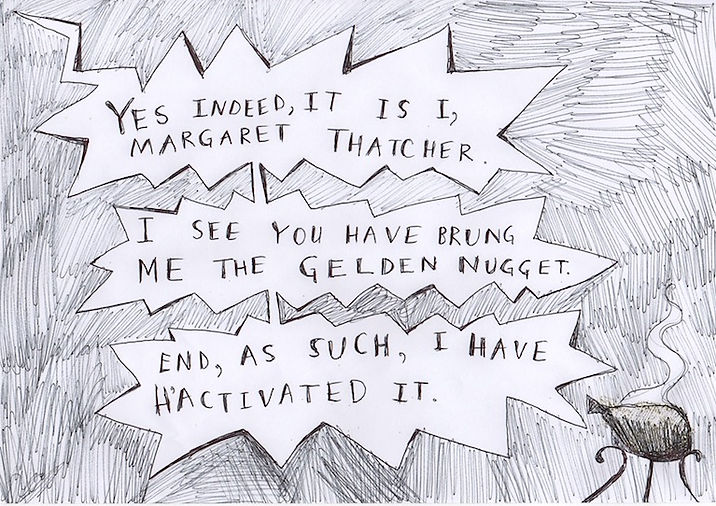 YES INDEED, IT IS I,
MARGARET THATCHER.
I SEE YOU HAVE BRUNG
ME THE GELDEN NUGGET.
END, AS SUCH, I HAVE
H'ACTIVATED IT.